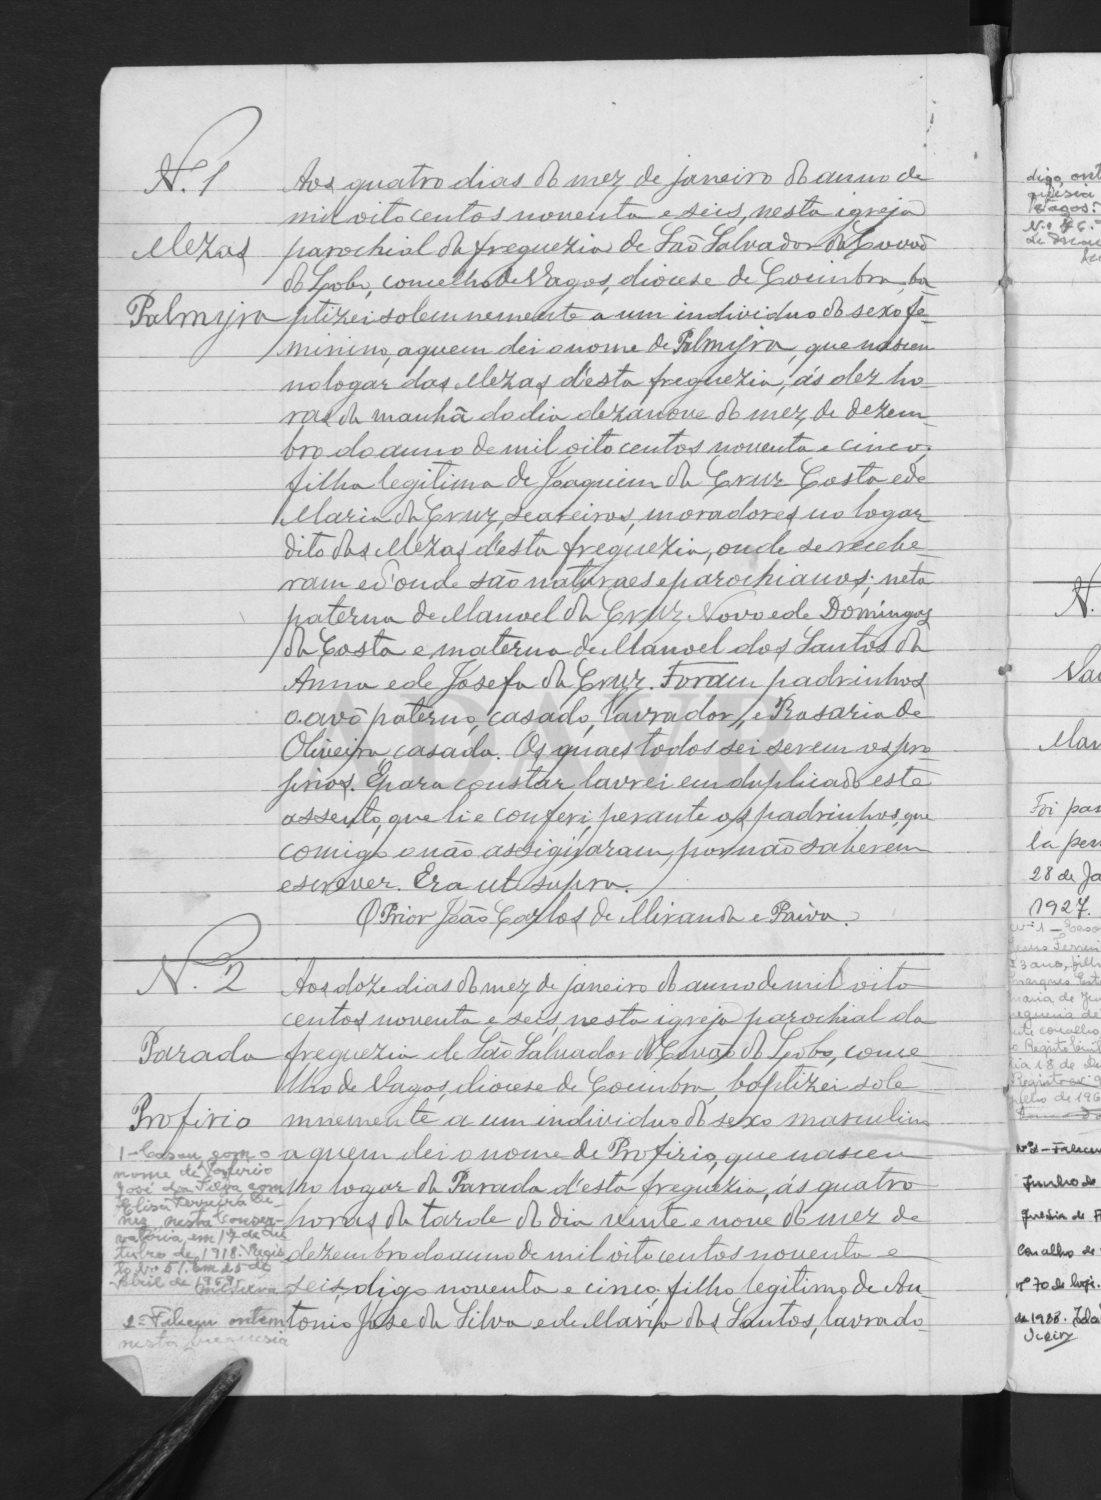 N. 1
Mezas
Palmyra
Aos quatro dias do mez de janeiro do anno de
mil oito centos noventa e seis, nesta igreja
parochial da freguezia de São Salvador do Covão
do Lobo, concelho de Vagos, diocese de Coimbra, ba
ptizei solemnemente a um individuo do sexo fe-
minino, a quem dei o nome de Palmyra, que nasceu
no logar das Mezas d'esta freguezia, ás dez ho-
ras da manhã do dia dezanove do mez de dezem-
bro do anno de mil oito centos noventa e cinco,
filha legitima de Joaquim da Cruz Costa e de
Maria da Cruz, seareiros, moradores no logar
dito das Mezas d'esta freguezia, onde se recebe-
ram e d'onde são naturaes e parochianos; neta
paterna de Manoel da Cruz Novo e de Domingas
da Costa e materna de Manoel dos Santos da
Anna e de Josefa da Cruz. Foram padrinhos
o avô paterno, casado, lavrador, e Rosaria de
Oliveira casada. Os quaes todos sei serem os pro
prios. E para constar lavrei em duplicado este
assento, que li e conferi perante os padrinhos, que
comigo o não assignaram, por não saberem
escrever. Era ut supra.
O Prior João Carlos de Miranda e Paiva.
N. 2
Parada
Profirio
Aos doze dias do mez de janeiro do anno de mil oito
centos noventa e seis, nesta igreja parochial da
freguezia de São Salvador do Covão do Lobo, conce-
lho de Vagos, diocese de Coimbra, baptizei sole
mnemente a um individuo do sexo masculino
a quem dei o nome de Profirio, que nasceu
no logar da Parada d'esta freguezia, ás quatro
horas da tarde do dia vinte e nove do mez de
dezembro do anno de mil oito centos noventa e
seis, digo noventa e cinco, filho legitimo de An-
tonio José da Silva e de Maria dos Santos, lavrado-
1- Casou com o
nome de Porfirio
José da Silva com
Elisa Ferreira
nesta Conser-
vatória, em 17 de Ou
tubro de 1918. Regis
to Nº 51. Em 25 de
Abril de 1959.
2= Faleceu ontem
nesta freguesia
ADAVR
digo, ont
guesia
Vagos.
N.
Man
Foi pas
la pe
28 de Ja
1927.
Nº 1 - Caso
Maria de
Junho de
Concelho de
nº 70 de hoje.
de 1988.